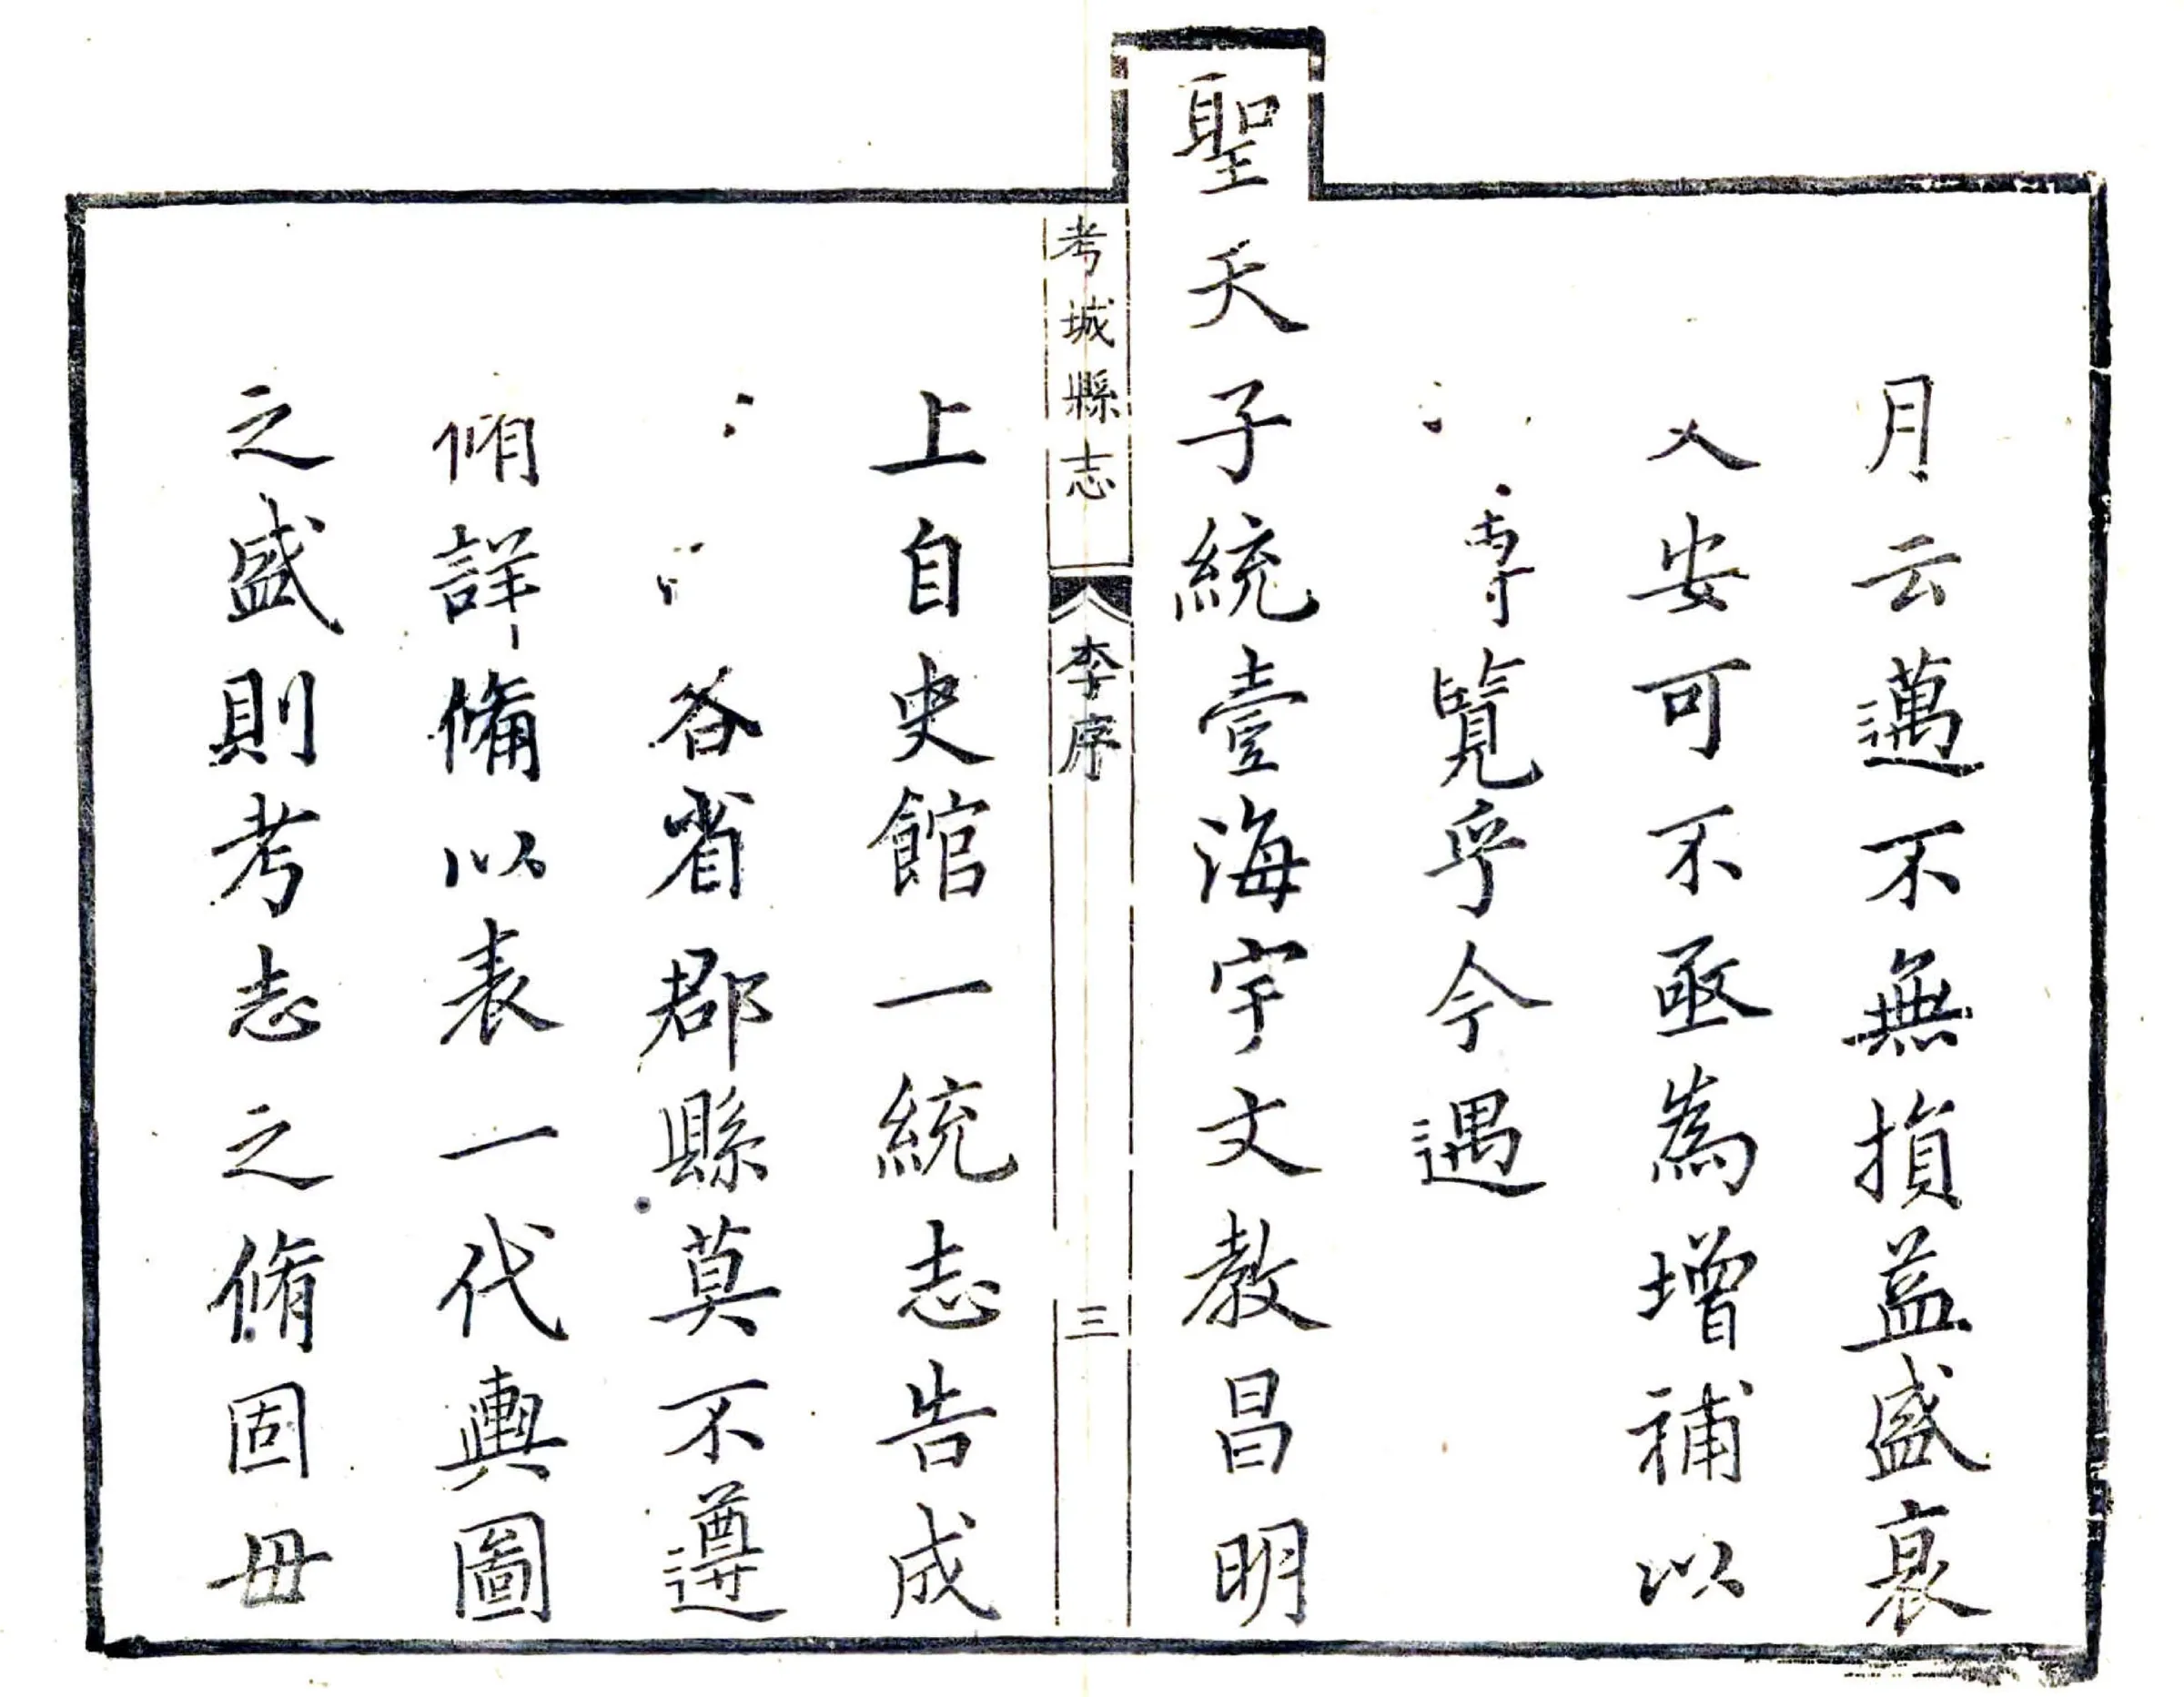 月云邁不無損益盛衰
安可不亟為增補以
覽乎今遇
聖天子統壹海宇文教昌明
考城縣志
李序
三
上自史館一統志告成
各省郡縣莫不遵
脩詳備以表一代輿圖
之盛則考志之脩固毋